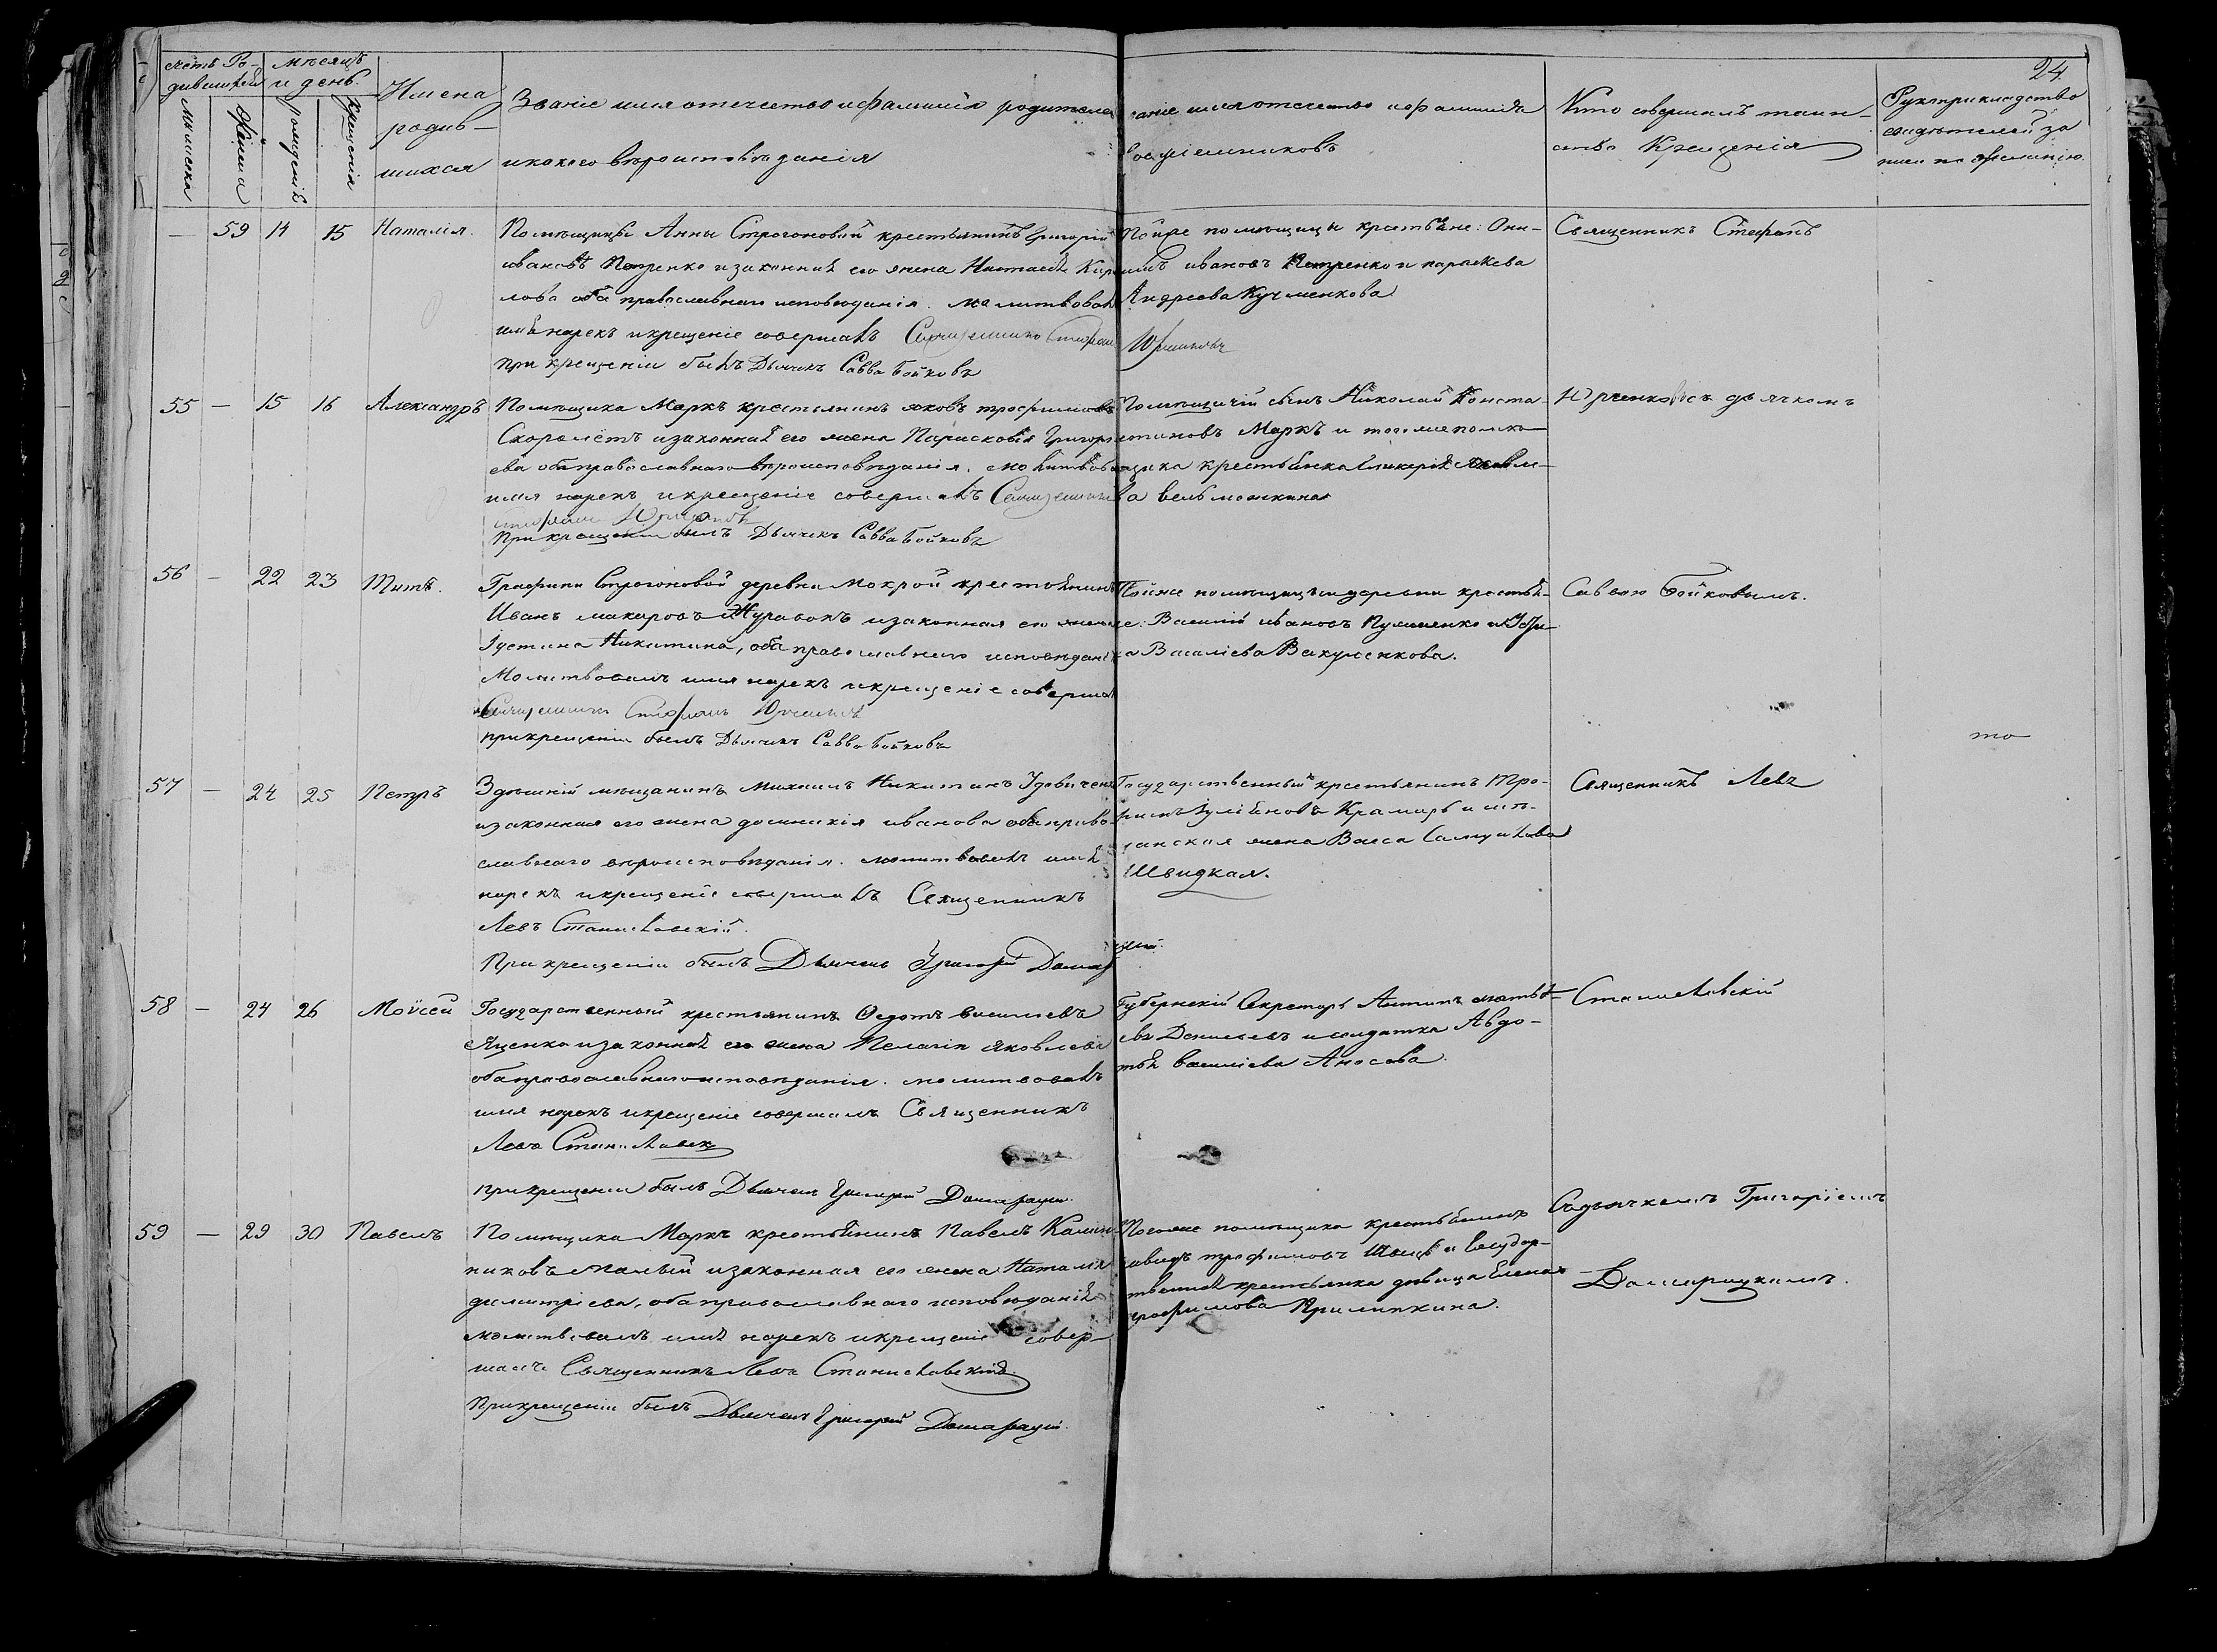 24
счетъ Ро-
дившихся
мѣсяцъ
и день.
Имена
родив-
шихся
Званіе имя отечество и фамилія родителей
и какого вѣроисповѣданія
Званіе имя отечество и фамилія
воспріемниковъ
Кто совершалъ таин-
ство Крещенія
Рукоприкладство
свидѣтелей за-
писи по желанію.
мужеска
женска
рожденія
крещенія
— 59 14 15 Наталія.
Помѣщицы Анны Строгоновой крестьянинъ Григорій
ивановъ Петренко и законная его жена Настасія Кири-
лова оба православнаго исповѣданія. молитвовалъ
имя нарекъ и крещеніе совершалъ Священникъ Стефанъ
Юрченковъ
при крещеніи былъ Дьячекъ Савва Бойковъ
Тойже помѣщицы крестьяне: Они-
симъ ивановъ Петренко и параскева
Андреева Кучменкова
Священникъ Стефанъ
55 — 15 16 Александръ
Помѣщика Маркъ крестьянинъ яковъ трофимовъ
Скоромѣтъ и законная его жена Парасковія Григорь-
ева оба православнаго вѣроисповѣданія. молитвовалъ
имя нарекъ и крещеніе совершалъ Священникъ
Стефанъ
При крещеніи былъ Дьячекъ Савва Бойковъ
Помѣщичій сынъ Николай Конста-
нтиновъ Маркъ и того же помѣ-
щика крестьянка Гликерія Яковле-
ва вельможкина
Юрченковъ съ дьячкомъ
56 — 22 23 Титъ.
Графини Строгоновой деревни мокрой крестьянинъ
Иванъ макаровъ Журавокъ и законная его жена
Іустина Никитина, оба православнаго исповѣданія
Молитвовалъ имя нарекъ и крещеніе совершалъ
Священникъ Стефанъ
при крещеніи былъ Дьячекъ Савва Бойковъ
Тойже помѣщицы и деревни крестья-
не: Василій ивановъ и
Василіева Вакуленкова.
Саввою Бойковымъ.
то
57 — 24 25 Петръ
Здѣшній мѣщанинъ Михаилъ Никитинъ Удовиченко
и законная его жена домникія иванова оба право-
славнаго вѣроисповѣданія. молитвовалъ имя
нарекъ и крещеніе совершалъ Священникъ
Левъ Станиславскій.
При крещеніи былъ Дьячекъ Григорій Домарацкій.
Государственный крестьянинъ Тро-
фимъ Крамарь и мѣ-
щанская жена Васса Самуилова
Швидкая.
Священникъ Левъ
58 — 24 26 Моѵсей
Государственный крестьянинъ Ѳедотъ васильевъ
Яценко и законная его жена Пелагія яковлева
оба православнаго исповѣданія. молитвовалъ
имя нарекъ и крещеніе совершалъ Священникъ
Левъ Станиславск
при крещеніи былъ Дьячекъ Григорій Домарацкій.
Губернскій Секретарь Антипъ матвѣ-
евъ Денисьевъ и солдатка Авдо-
тья василіева Аносова.
Станиславскій
59 — 29 30 Павелъ
Помѣщика Маркъ крестьянинъ Павелъ Калин-
никовъ Малый и законная его жена Наталія
димитріева, оба православнаго исповѣданія
молитвовалъ имя нарекъ и крещеніе совер-
шалъ Священникъ Левъ Станиславскій
При крещеніи былъ Дьячекъ Григорій Домарацкій.
Тогоже помѣщика крестьянинъ
давидъ трофимовъ Швецъ и Государ-
ственная крестьянка дѣвица Елена
трофимова Прилипкина.
Съ дьячкомъ Григоріемъ
Домарацкимъ.